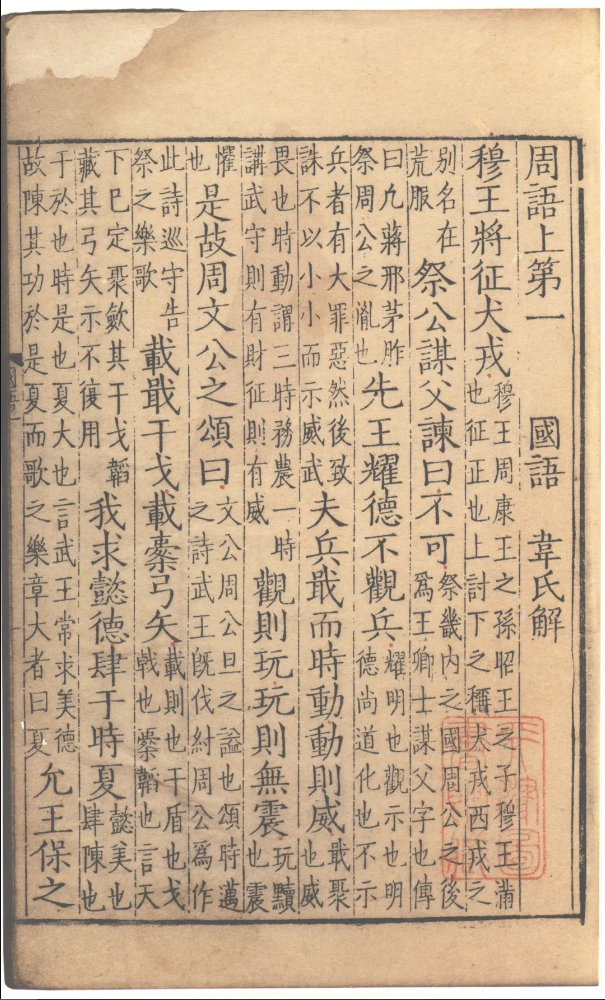 周語上第一 國語 韋氏解
穆王將征犬戎穆王周康王之孫昭王之子穆王滿也征正也上討下之稱犬戎西戎之
別名在荒服祭公謀父諫曰不可祭畿內之國周公之後爲王卿士謀父字也傳
曰凡蔣邢茅胙祭周公之胤也先王耀德不觀兵耀明也觀示也明德尚道化也不示
兵者有大罪惡然後致誅不以小小而示威武夫兵戢而時動動則威戢聚也威
畏也時動謂三時務農一時講武守則有財征則有威觀則玩玩則無震玩黷也震
懼也是故周文公之頌曰文公周公旦之謚也頌時邁之詩武王旣伐紂周公爲作
此詩巡守告祭之樂歌載戢干戈載櫜弓矢載則也干盾也戈戟也櫜韜也言天
下已定聚斂其干戈韜藏其弓矢示不復用我求懿德肆于時夏懿美也肆陳也
于於也時是也夏大也言武王常求美德故陳其功於是夏而歌之樂章大者曰夏允王保之